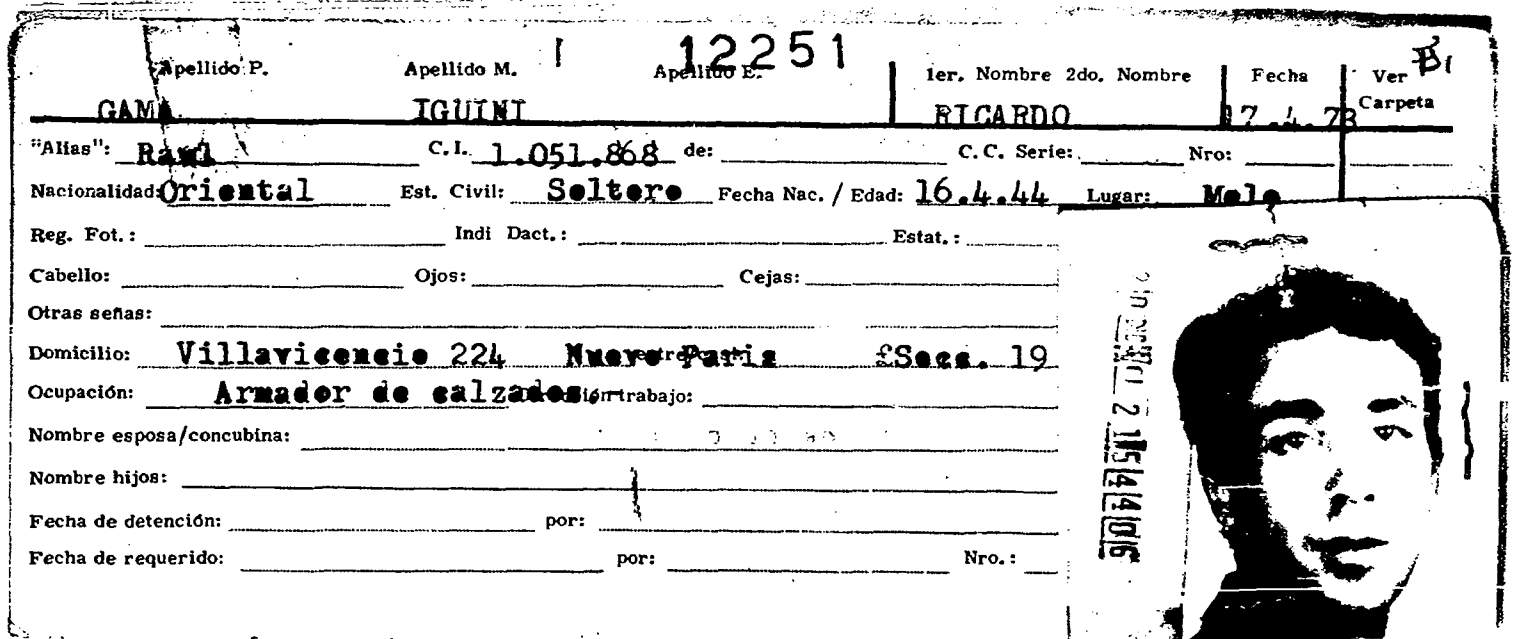 12251
Apellido P. Apellido M. Apellido E. 1er. Nombre 2do. Nombre Fecha Ver B1
GAMA IGUINI RICARDO 17.4.78 Carpeta
"Alias": Raul C.I. 1.051.868 de: C.C. Serie: Nro:
Nacionalidad: Oriental Est. Civil: Soltero Fecha Nac. / Edad: 16.4.44 Lugar: Melo
Reg. Fot.: Indi Dact.: Estat.:
Cabello: Ojos: Cejas:
Otras señas:
Domicilio: Villavicencio 224 Nuevo Paris Secc. 19
Ocupación: Armador de calzados.- trabajo:
Nombre esposa/concubina:
Nombre hijos:
Fecha de detención: por:
Fecha de requerido: por: Nro.: